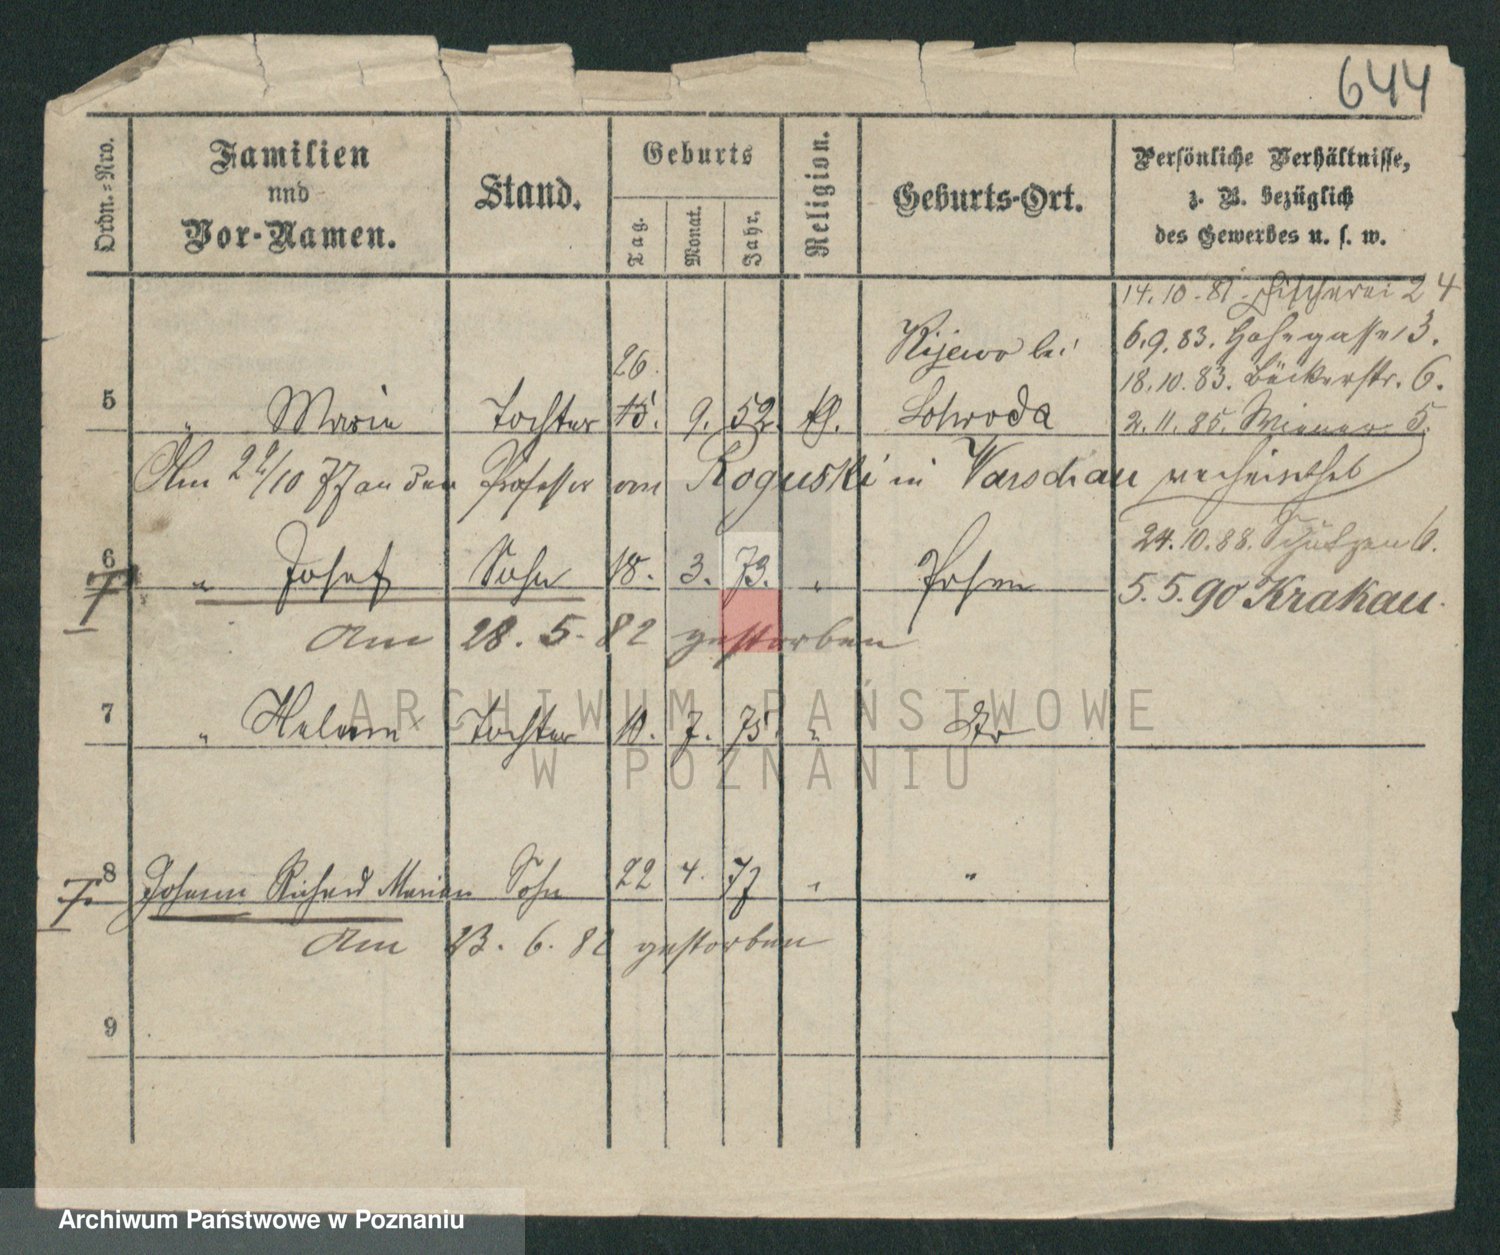 644
Ordn.=Nro.
Familien
und
Vor-Namen.
Stand.
Geburts
Tag.
Monat.
Jahr.
Religion.
Geburts-Ort.
Persönliche Verhältnisse,
z. B. bezüglich
des Gewerbes u. s. w.
14.10.81. Fischerei 24
6.9.83. 3.
18.10.83. Bäckerstr. 6.
2.11.85. Wiener 5.
26.
Kijewo bei
5 " Marie Tochter 15. 9. 52. Schroda
Am 27/10 77 an den Professor von Roguski in Warschau verheirathet
24.10.88. Schützen 6.
6 " Josef Sohn 18. 3. 73. " Posen
5.5.90 Krakau.
Am 28. 5. 82 gestorben
7 " Helene Tochter 10. 7. 75. " Do
8 Johann Richard Marian Sohn 22 4. 77 " "
Am 23. 6. 82 gestorben
9
ARCHIWUM PAŃSTWOWE
W POZNANIU
Archiwum Państwowe w Poznaniu